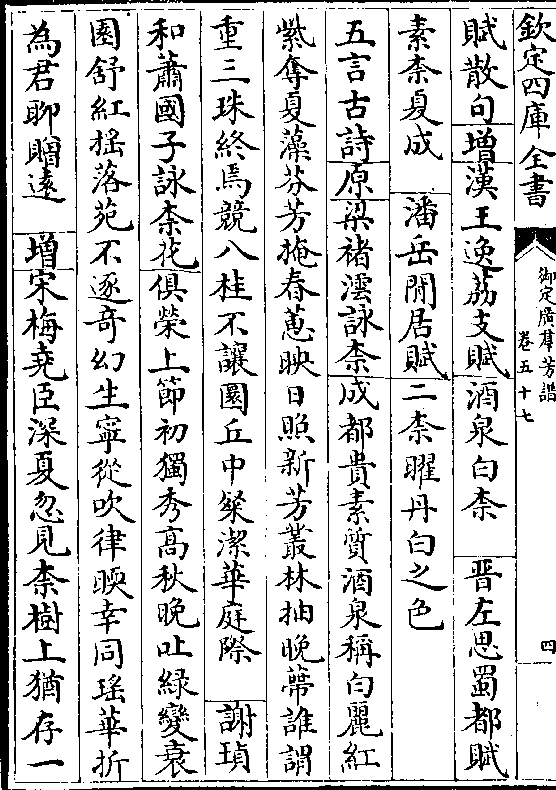 欽定四庫全書
御定廣羣芳譜
卷五十七
四
賦散句增漢王逸荔支賦酒泉白柰 晋左思蜀都賦
素柰夏成 潘岳閒居賦二柰曜丹白之色
五言古詩原梁褚澐詠柰成都貴素質酒泉稱白麗紅
紫奪夏藻芬芳掩春蕙映日照新芳叢林抽晚蔕誰謂
重三珠終焉競八桂不讓圜丘中粲潔華庭際 謝瑱
和蕭國子詠柰花俱榮上節初獨秀高秋晚吐綠變衰
園舒紅搖落苑不逐奇幻生寧從吹律暖幸同瑤華折
為君聊贈遠 增宋梅堯臣深夏忽見柰樹上猶存一